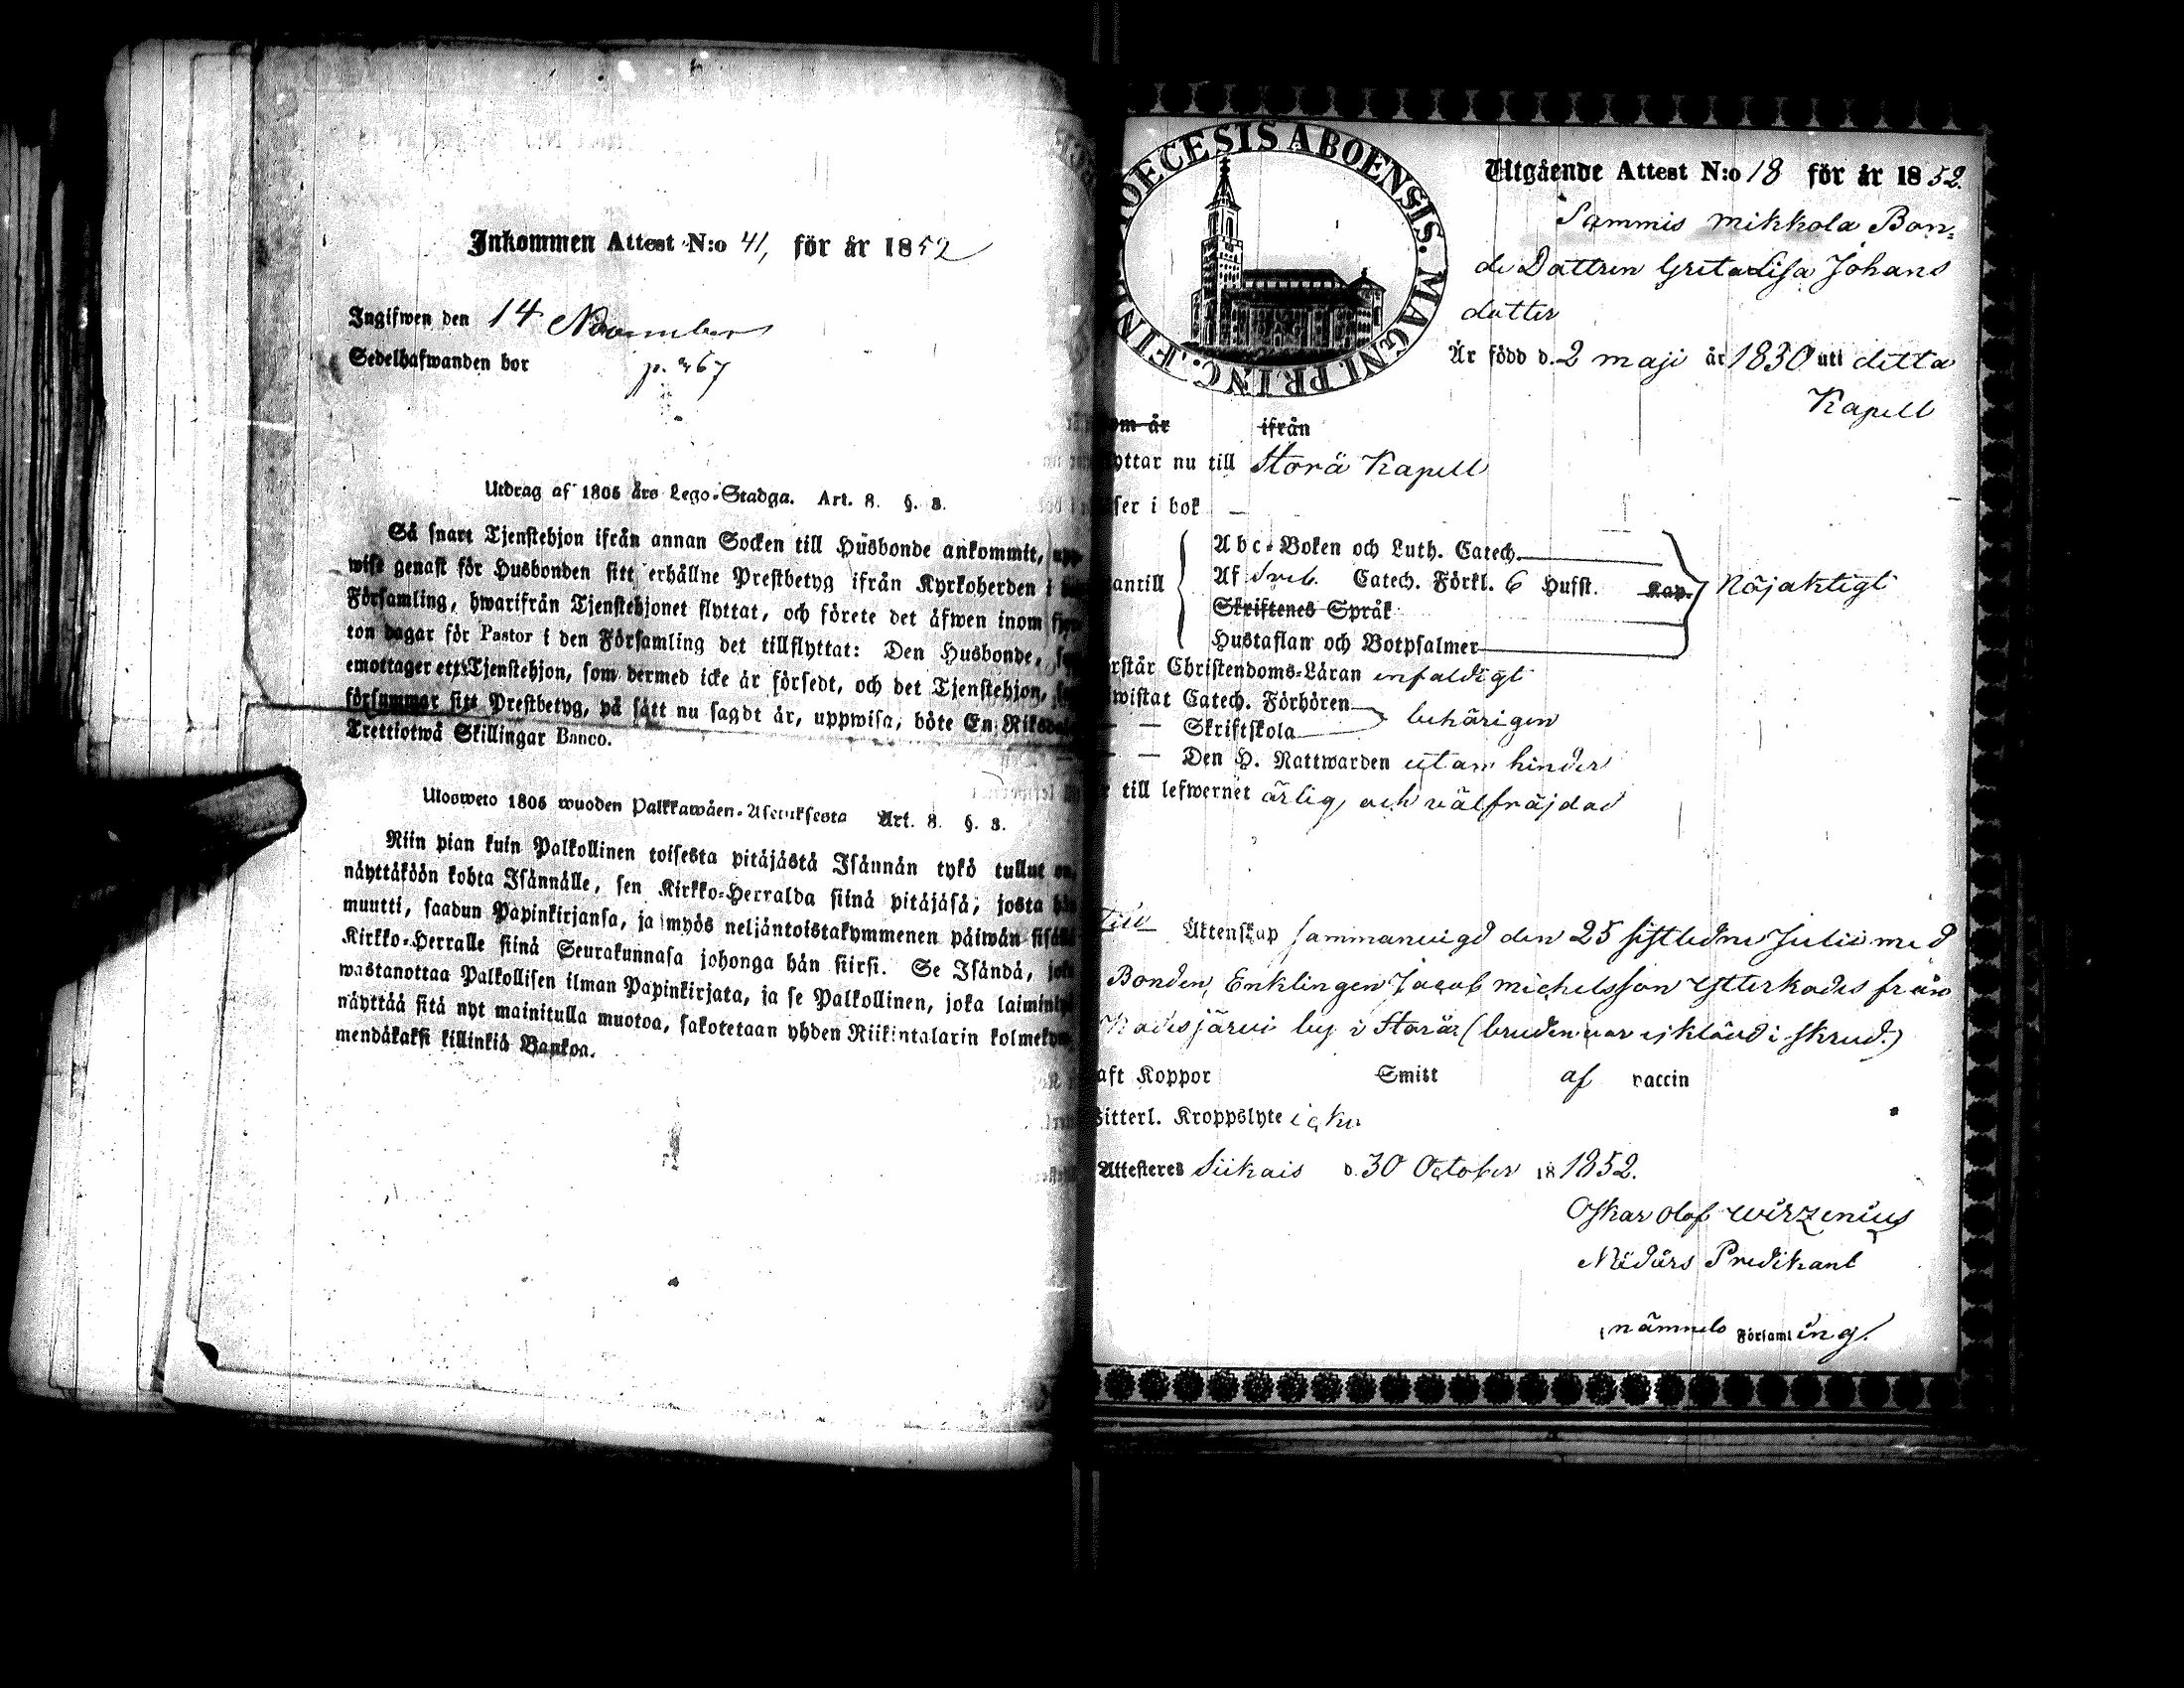 Inkommen Attest N:o 41, för år 1852
Ingifwen den 14 November
Sedelhafwanden bor p. 67
Utdrag af 1805 års Lego-Stadga. Art. 8. §. 3.
Så snart Tjenstehjon ifrån annan Socken till Husbonde ankommit, upp-
wise genast för Husbonden sitt erhållne Prestbetyg ifrån Kyrkoherden i
Församling, hwarifrån Tjenstehjonet flyttat, och förete det äfwen inom
ton dagar för Pastor i den Församling det tillflyttat: Den Husbonde,
emottager ett Tjenstehjon, som dermed icke är försedt, och det Tjenstehjon,
försummar sitt Prestbetyg, på sätt nu sagdt är, uppwisa, böte En Riksdal
Trettiotwå Skillingar Banco.
Ulosweto 1805 wuoden Palkkawäen-Asetuksesta Art. 8. §. 3.
Niin pian kuin Palkollinen toisesta pitäjästä Isännän tykö tullut on,
näyttäköön kohta Isännälle, sen Kirkko-Herralda siinä pitäjäsä, josta hän
muutti, saadun Papinkirjansa, ja myös neljäntoistakymmenen päiwän sisällä
Kirkko-Herralle siinä Seurakunnasa johonga hän siirsi. Se Isändä, joka
wastanottaa Palkollisen ilman Papinkirjata, ja se Palkollinen, joka laiminlyö
näyttää sitä nyt mainitulla muotoa, sakotetaan yhden Riikintalarin kolmekym-
mendäkaksi killinkiä Bankoa.
OECESIS ABOENSIS. MAGNI. PRINC. FIN
Utgående Attest N:o 18 för år 1852.
Sammis Mikkola Bon-
de Dottren Greta Lisa Johans
dotter
Är född d. 2 Maji år 1830 uti detta
Kapell
om år ifrån
yttar nu till Storå Kapell
ser i bok —
Abc-Boken och Luth. Catech.
antill Af Sveb. Catech. Förkl. 6 Hufst. Kap. Nöjaktigt
Skriftenes Språk
Hustaflan och Botpsalmer
rstår Christendoms-Läran enfaldigt
wistat Catech. Förhören
— — Skriftskola behörigen
— — Den H. Nattwarden utan hinder
till lefwernet ärlig och välfräjdad
Till Äktenskap sammanvigd den 25 sistledne Julii med
Bonden, Enklingen Jacob Michelsson Ytterkodes från
Kodesjärvi by i Storå (bruden var ej klädd i skrud.)
aft Koppor Smitt af vaccin
Sitterl. Kroppslyte icke
Attesteres Siikais d. 30 October 18 1852.
Oskar Olof Wirzenius
Nödårs Predikant
nämnde Församling.